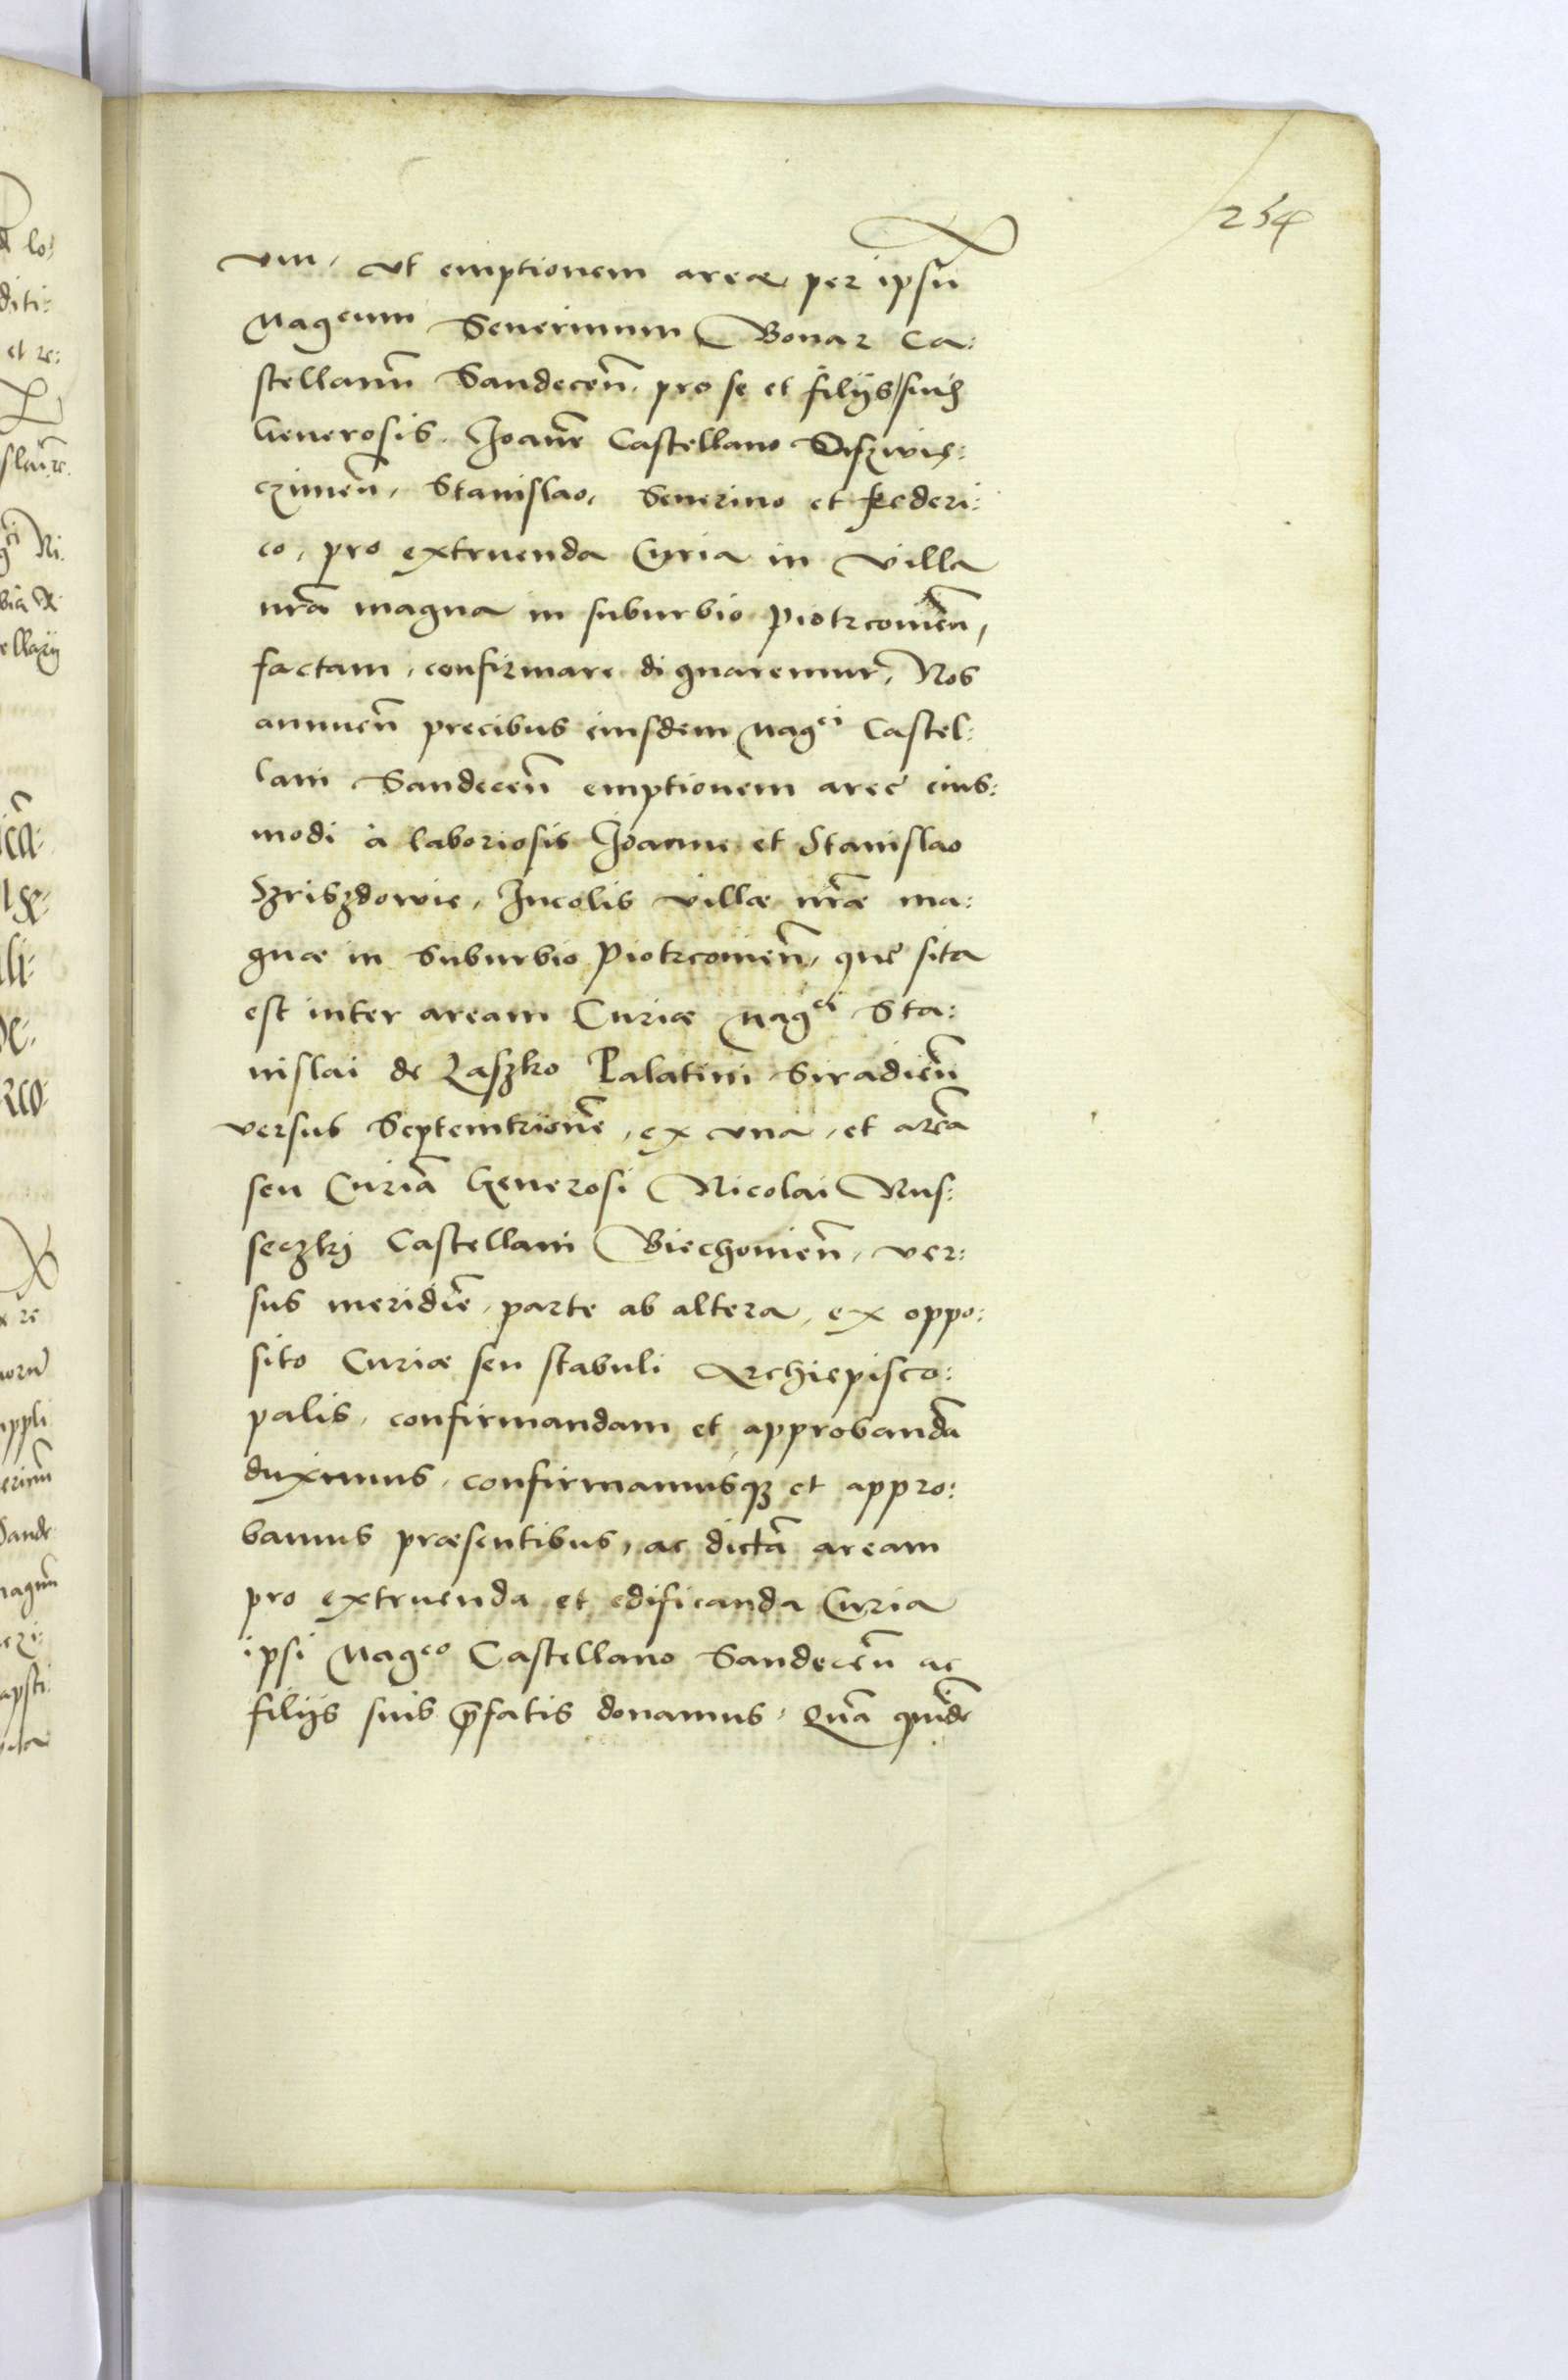 254
vm, vt emptionem areæ per ipsũ
Magcum Seuerinum Bonar Ca:
stellanũ Sandecen̄. pro se et filijs suis
Generosis. Joanne Castellano Osswię:
czimen̄, Stanislao, Seuerino et frederi:
co, pro extruenda Curia in villa
nr̃a magna in suburbio Piotrcouien̄,
factam, confirmare dignaremur, Nos
annuen̄ precibus eiusdem Magci Castel:
lani Sandecen̄ emptionem areę eius:
modi à laboriosis Joanne et Stanislao
Szriszdowie, Incolis villæ nr̃æ ma:
gnæ in Suburbio Piotrcouien̄, quę sita
est inter aream Curiæ Magci Sta:
nislai de Laszko Palatini Siradien̄
versus Septemtrionẽ, ex vna, et areã
seu Curiã Generosi Nicolai Rus:
seczkj Castellani Biechouien̄, ver:
sus meridiẽ, parte ab altera, ex oppo:
sito Curiæ seu stabuli Archiepisco:
palis, confirmandam et approbandã
duximus, confirmamusq3 et appro:
bamus præsentibus, ac dictã aream
pro extruenda et edificanda Curia
ipsi Magco Castellano Sandecen̄ ac
filijs suis p̃fatis donamus. Quã quidẽ